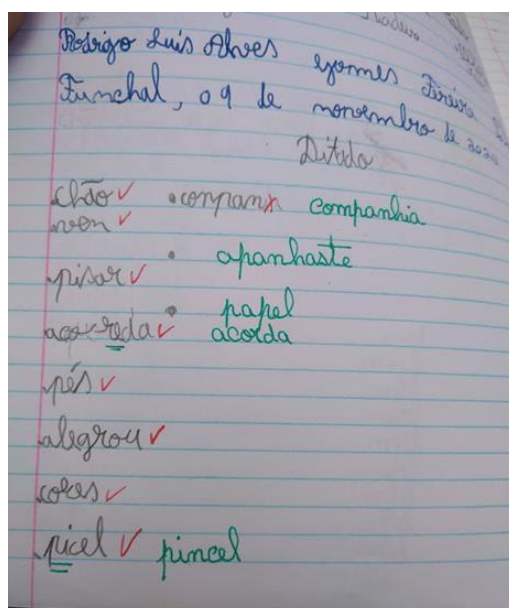 Rodrigo Luís Alves Gomes Pereira
Funchal, 09 de novembro de 2020
Ditado
chão companx companhia
ven
apanhaste
pisar
papel
aco reda acorda
pés
alegrou
cores
picel pincel